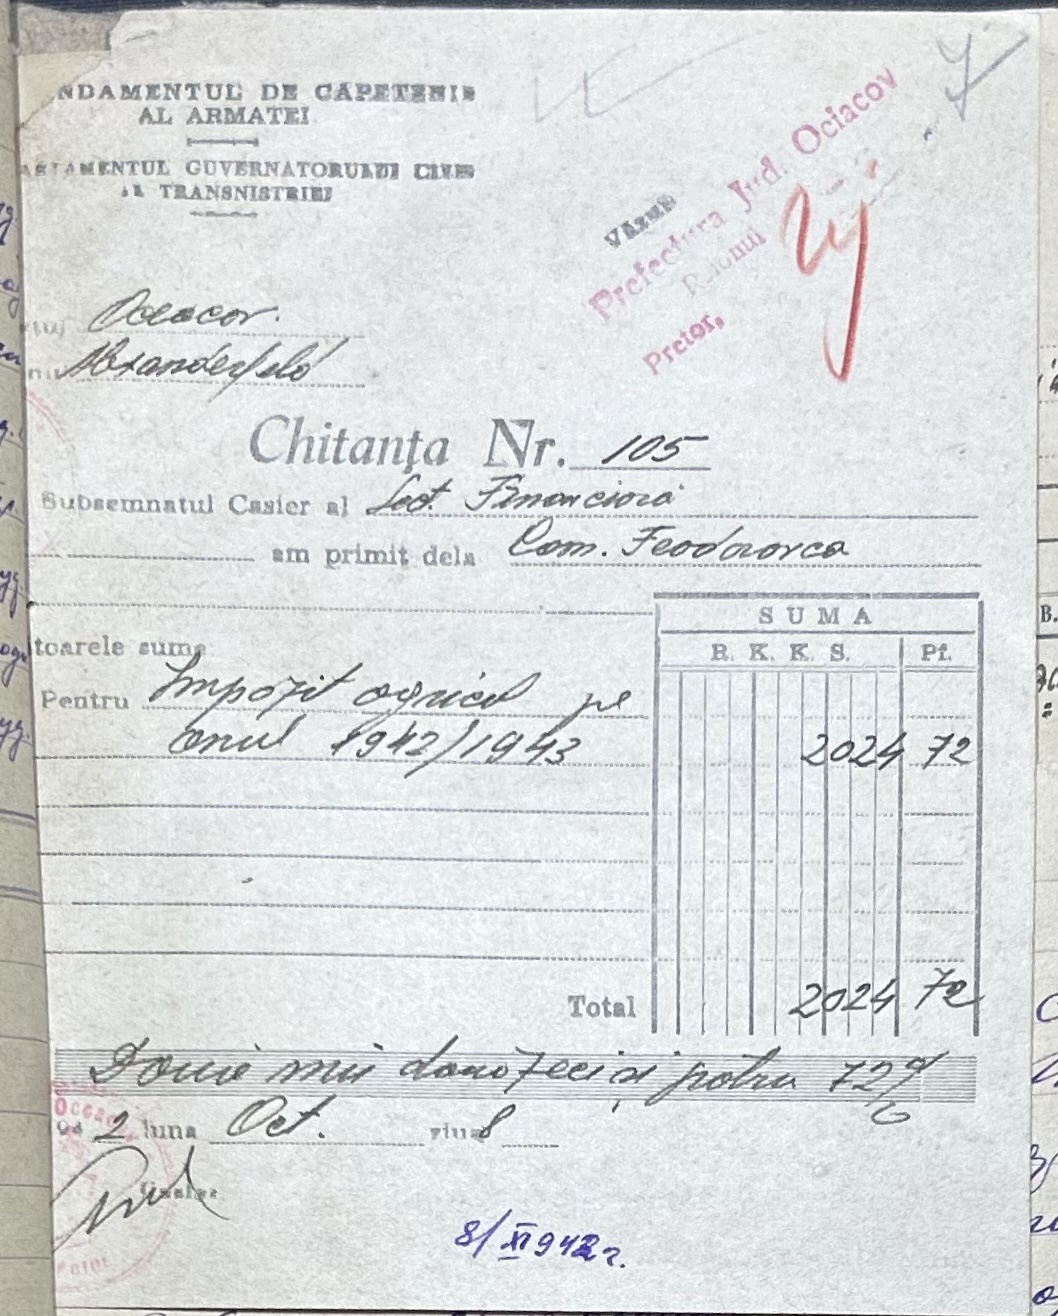 NDAMENTUL DE CAPETENIE
AL ARMATEI
AMENTUL GUVERNATORULUI CIVIL
AL TRANSNISTRIEI
VĂZUT
Prefectura Jud. Ociacov
Raionul
Pretor,
7
Oceacov.
Alexanderfeld
Chitanţa Nr. 105
Subsemnatul Casier al Sect. Financiora
am primit dela Com. Feodorovca
toarele sume
SUMA
R. K. K. S. Pf.
Pentru Impozit agricol pe
anul 1942/1943 2024 72
Total 2024 72
Două mii douăzeci și patru 72
94 2 luna Oct. ziua 8
Casier
8/XI 942 г.